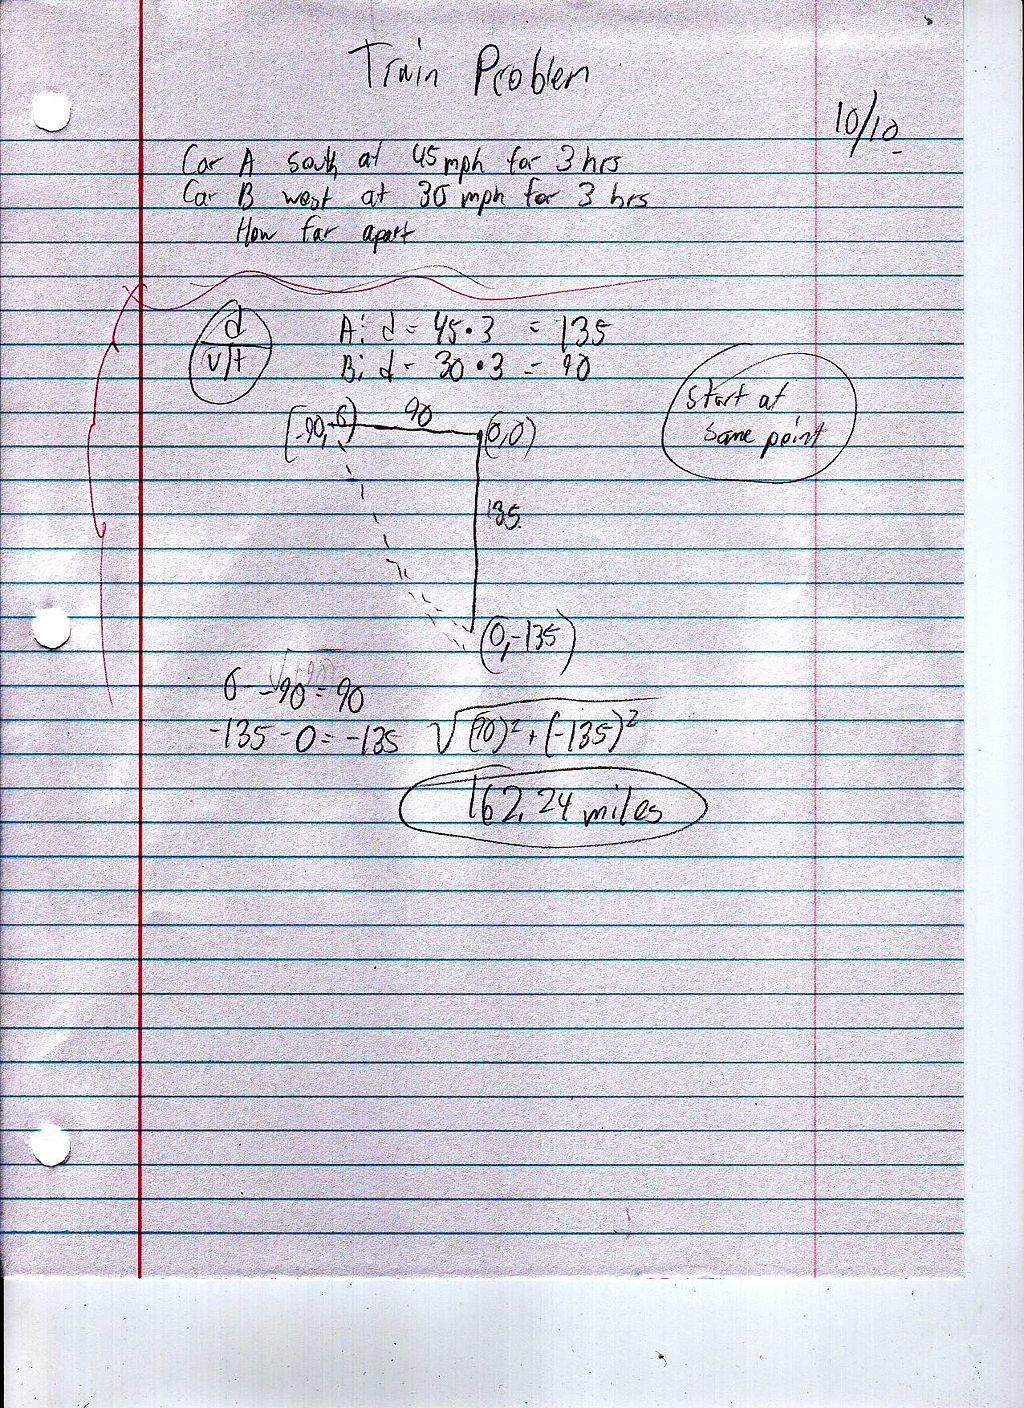 Train Problem
10/10
Car A south at 45 mph for 3 hrs
Car B west at 30 mph for 3 hrs
How far apart
d
v/t
A: d = 45 • 3 = 135
B: d = 30 • 3 = 90
start at
same point
(-90, 0)
90
(0,0)
135
(0,-135)
0 - -90 = 90
-135 - 0 = -135
√(90)² + (-135)²
162.24 miles